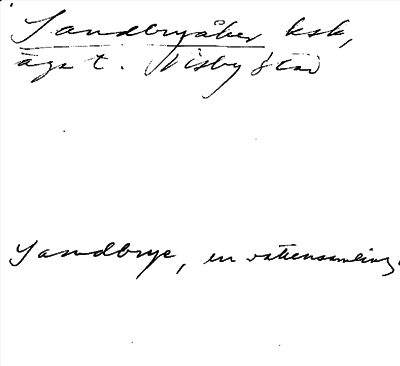 Sandbryåker ksk,
äga t. Visby stad
Sandbrye, en vattensamling.